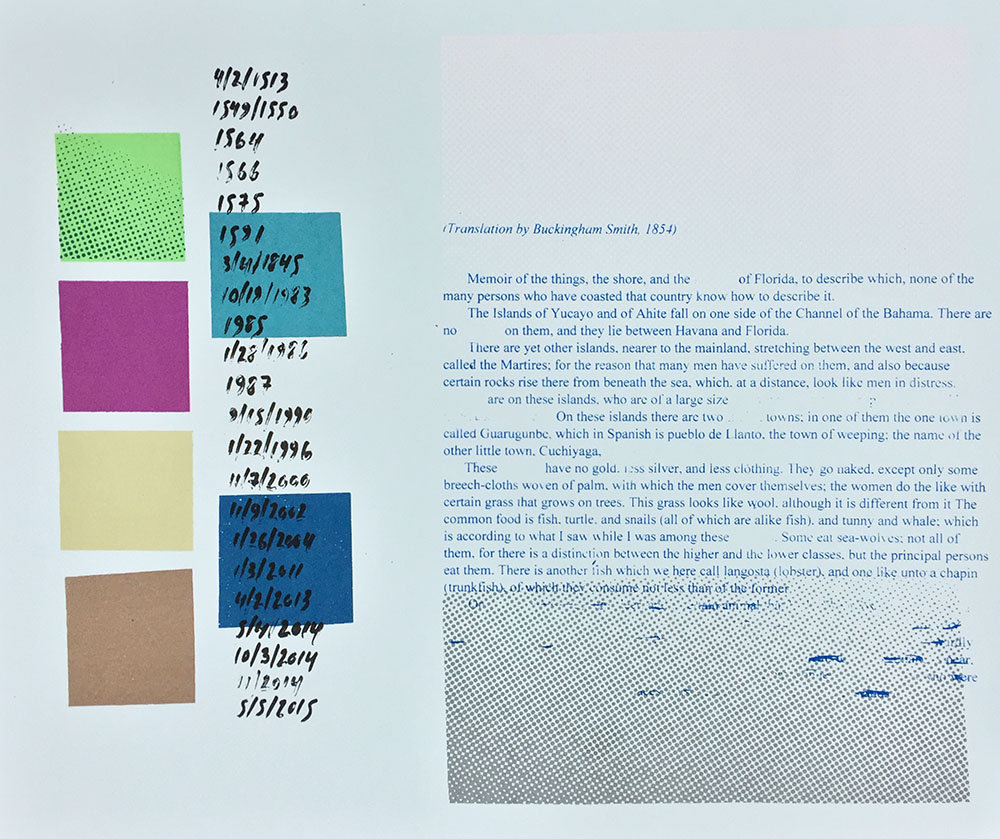 4/2/1513
1549/1550
1564
1566
1575
1591
3/4/1845
10/19/1983
1985
1/28/1986
1987
9/15/1990
1/22/1996
11/7/2000
11/9/2002
1/26/2004
1/3/2011
4/2/2013
5/4/2014
10/3/2014
11/2014
5/5/2015
(Translation by Buckingham Smith, 1854)
Memoir of the things, the shore, and the of Florida, to describe which, none of the
many persons who have coasted that country know how to describe it.
The Islands of Yucayo and of Ahite fall on one side of the Channel of the Bahama. There are
no on them, and they lie between Havana and Florida.
There are yet other islands, nearer to the mainland, stretching between the west and east,
called the Martires; for the reason that many men have suffered on them, and also because
certain rocks rise there from beneath the sea, which, at a distance, look like men in distress.
are on these islands, who are of a large size
On these islands there are two towns; in one of them the one town is
called Guarugunbe, which in Spanish is pueblo de Llanto, the town of weeping; the name of the
other little town, Cuchiyaga,
These have no gold, less silver, and less clothing. They go naked, except only some
breech-cloths woven of palm, with which the men cover themselves; the women do the like with
certain grass that grows on trees. This grass looks like wool, although it is different from it The
common food is fish, turtle, and snails (all of which are alike fish), and tunny and whale; which
is according to what I saw while I was among these . Some eat sea-wolves; not all of
them, for there is a distinction between the higher and the lower classes, but the principal persons
eat them. There is another fish which we here call langosta (lobster), and one like unto a chapin
(trunkfish), of which they consume not less than of the former.
animal
near,
were